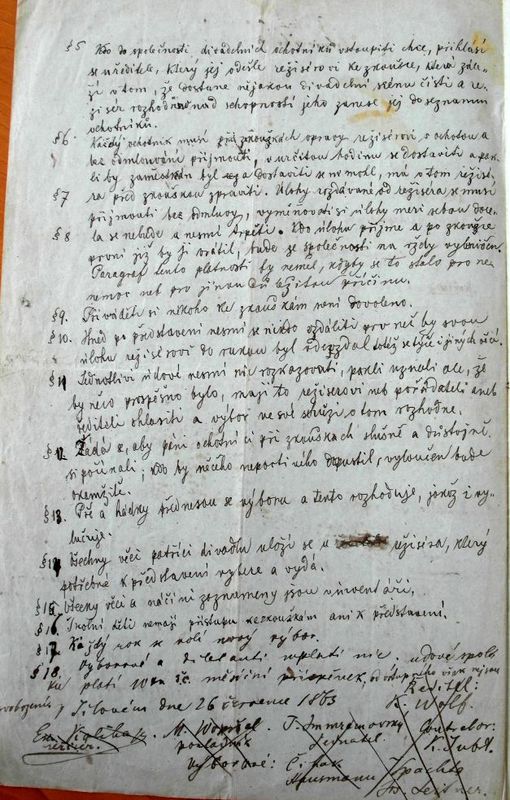 §5 Kdo do společnosti divadelních ochotníků vstoupiti chce, přihlásí
se u ředitele, který jej odešle režisérovi ke zkoušce, která zále-
ží v tom, že dostane nějakou divadelní scénu čísti a re-
žisér rozhodne nad schopností jeho zanese jej do seznamu
ochotníků.
§6. Každý ochotník musí při zkouškách opravy režisérovi s ochotou a
bez odmlouvání přijmouti, v určitou hodinu se dostaviti a pak-
li by zaměstnán byl a dostaviti se nemohl, má o tom režisé-
§7 ra před zkouškou zpraviti. Úlohy rozdávané od režiséra se musí
přijmouti bez domluvy, vyměňovati si úlohy mezi sebou doce-
§8 la se nehodí a nesmí trpěti. Kdo úlohu přijme a po zkoušce
první již by ji vrátil, bude ze společnosti na vždy vyloučen.
Paragraf tento platnosti by neměl, kdyby se to stalo pro ne-
nemoc neb pro jinou důležitou příčinu.
§9. Přiváděti si někoho ke zkouškám není dovoleno.
§10. Hned po představení nesmí se nikdo vzdáliti prv než by svou
úlohu režisérovi do rukou byl odevzdal totéž se týče i jiných věcí.
§11 Jednotliví údové nesmí nic rozkazovati, pakli uznali ale, že
by něco prospěšno bylo, mají to režisérovi neb pořadateli aneb
řediteli ohlásiti a výbor ve své schůzi o tom rozhodne.
§12 Žádá se, aby páni ochotníci při zkouškách slušně a důstojně
si počínali; kdo by něčeho nepoctivého dopustil, vyloučen bude
okamžitě.
§13. Pře a hádky přednesou se výboru a tento rozhoduje, jakož i vy-
lučuje.
§14 Všechny věci patřící divadlu uloží se u režiséra, který
potřebné k představení vybere a vydá.
§15. Všecky věci a náčiní zeznamenány jsou v inventáři.
§16. Školní děti nemají přístupu ke zkouškám ani k představení.
§17. Každý rok se volí nový výbor.
§18. Výborové a diletanti neplatí nic. údové spole
platí 10 kr měsíční příspěvek, od vstupného však nejsou
osvobozeni V Jílovém dne 26 července 1863 Ředitel:
K. Wolf.
M. T. Controlor:
režisér. pokladník jednatel.
Výborové:
Hausmann
Fr. Leitner.